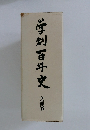 学制百年史